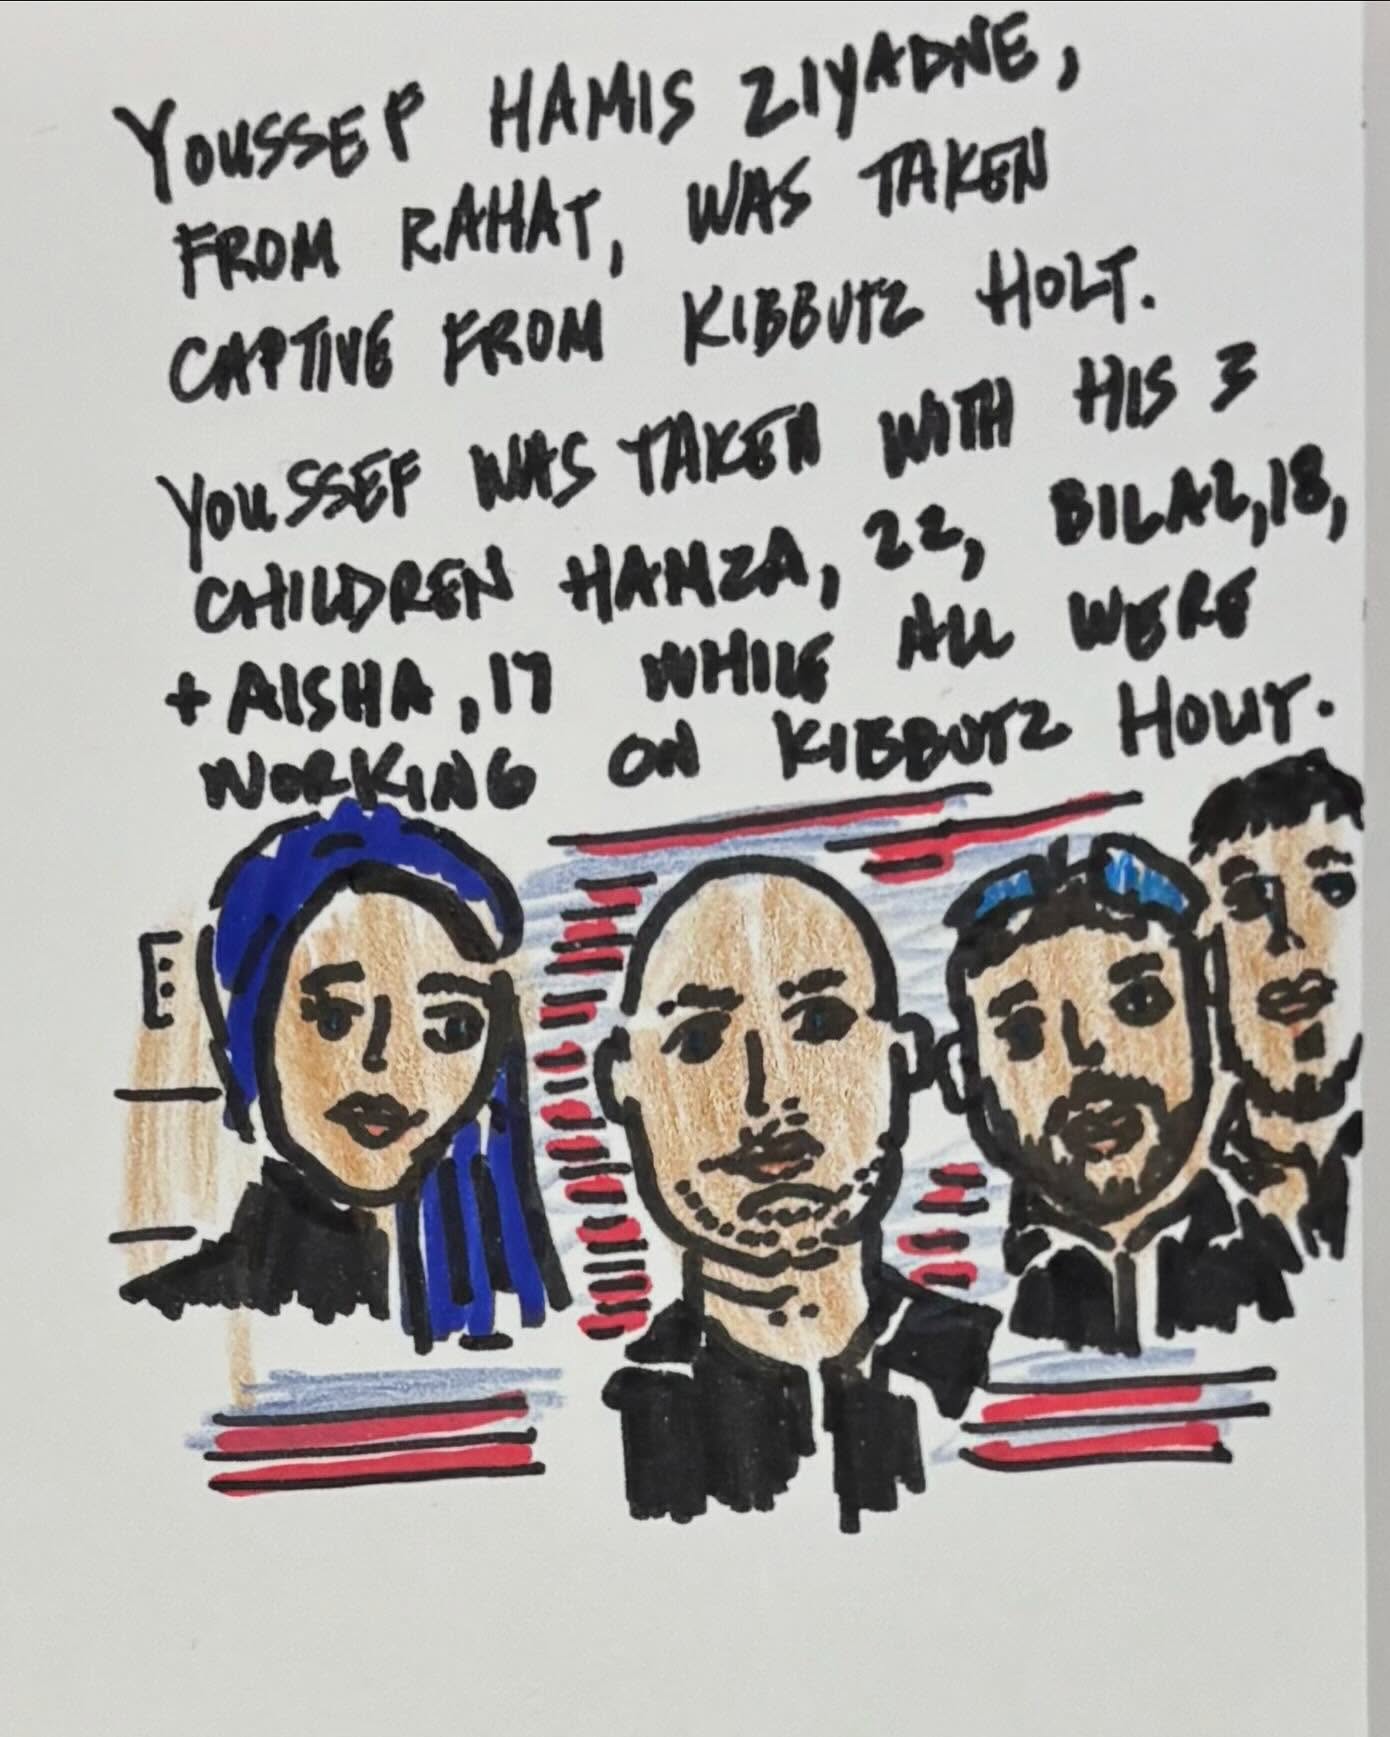 YOUSSEF HAMIS ZIYADNE,
FROM RAHAT, WAS TAKEN
CAPTIVE FROM KIBBUTZ HOLT.
YOUSSEF WAS TAKEN WITH HIS 3
CHILDREN HAMZA, 22, BILAL, 18,
+ AISHA, 17 WHILE ALL WERE
WORKING ON KIBBUTZ HOLIT.